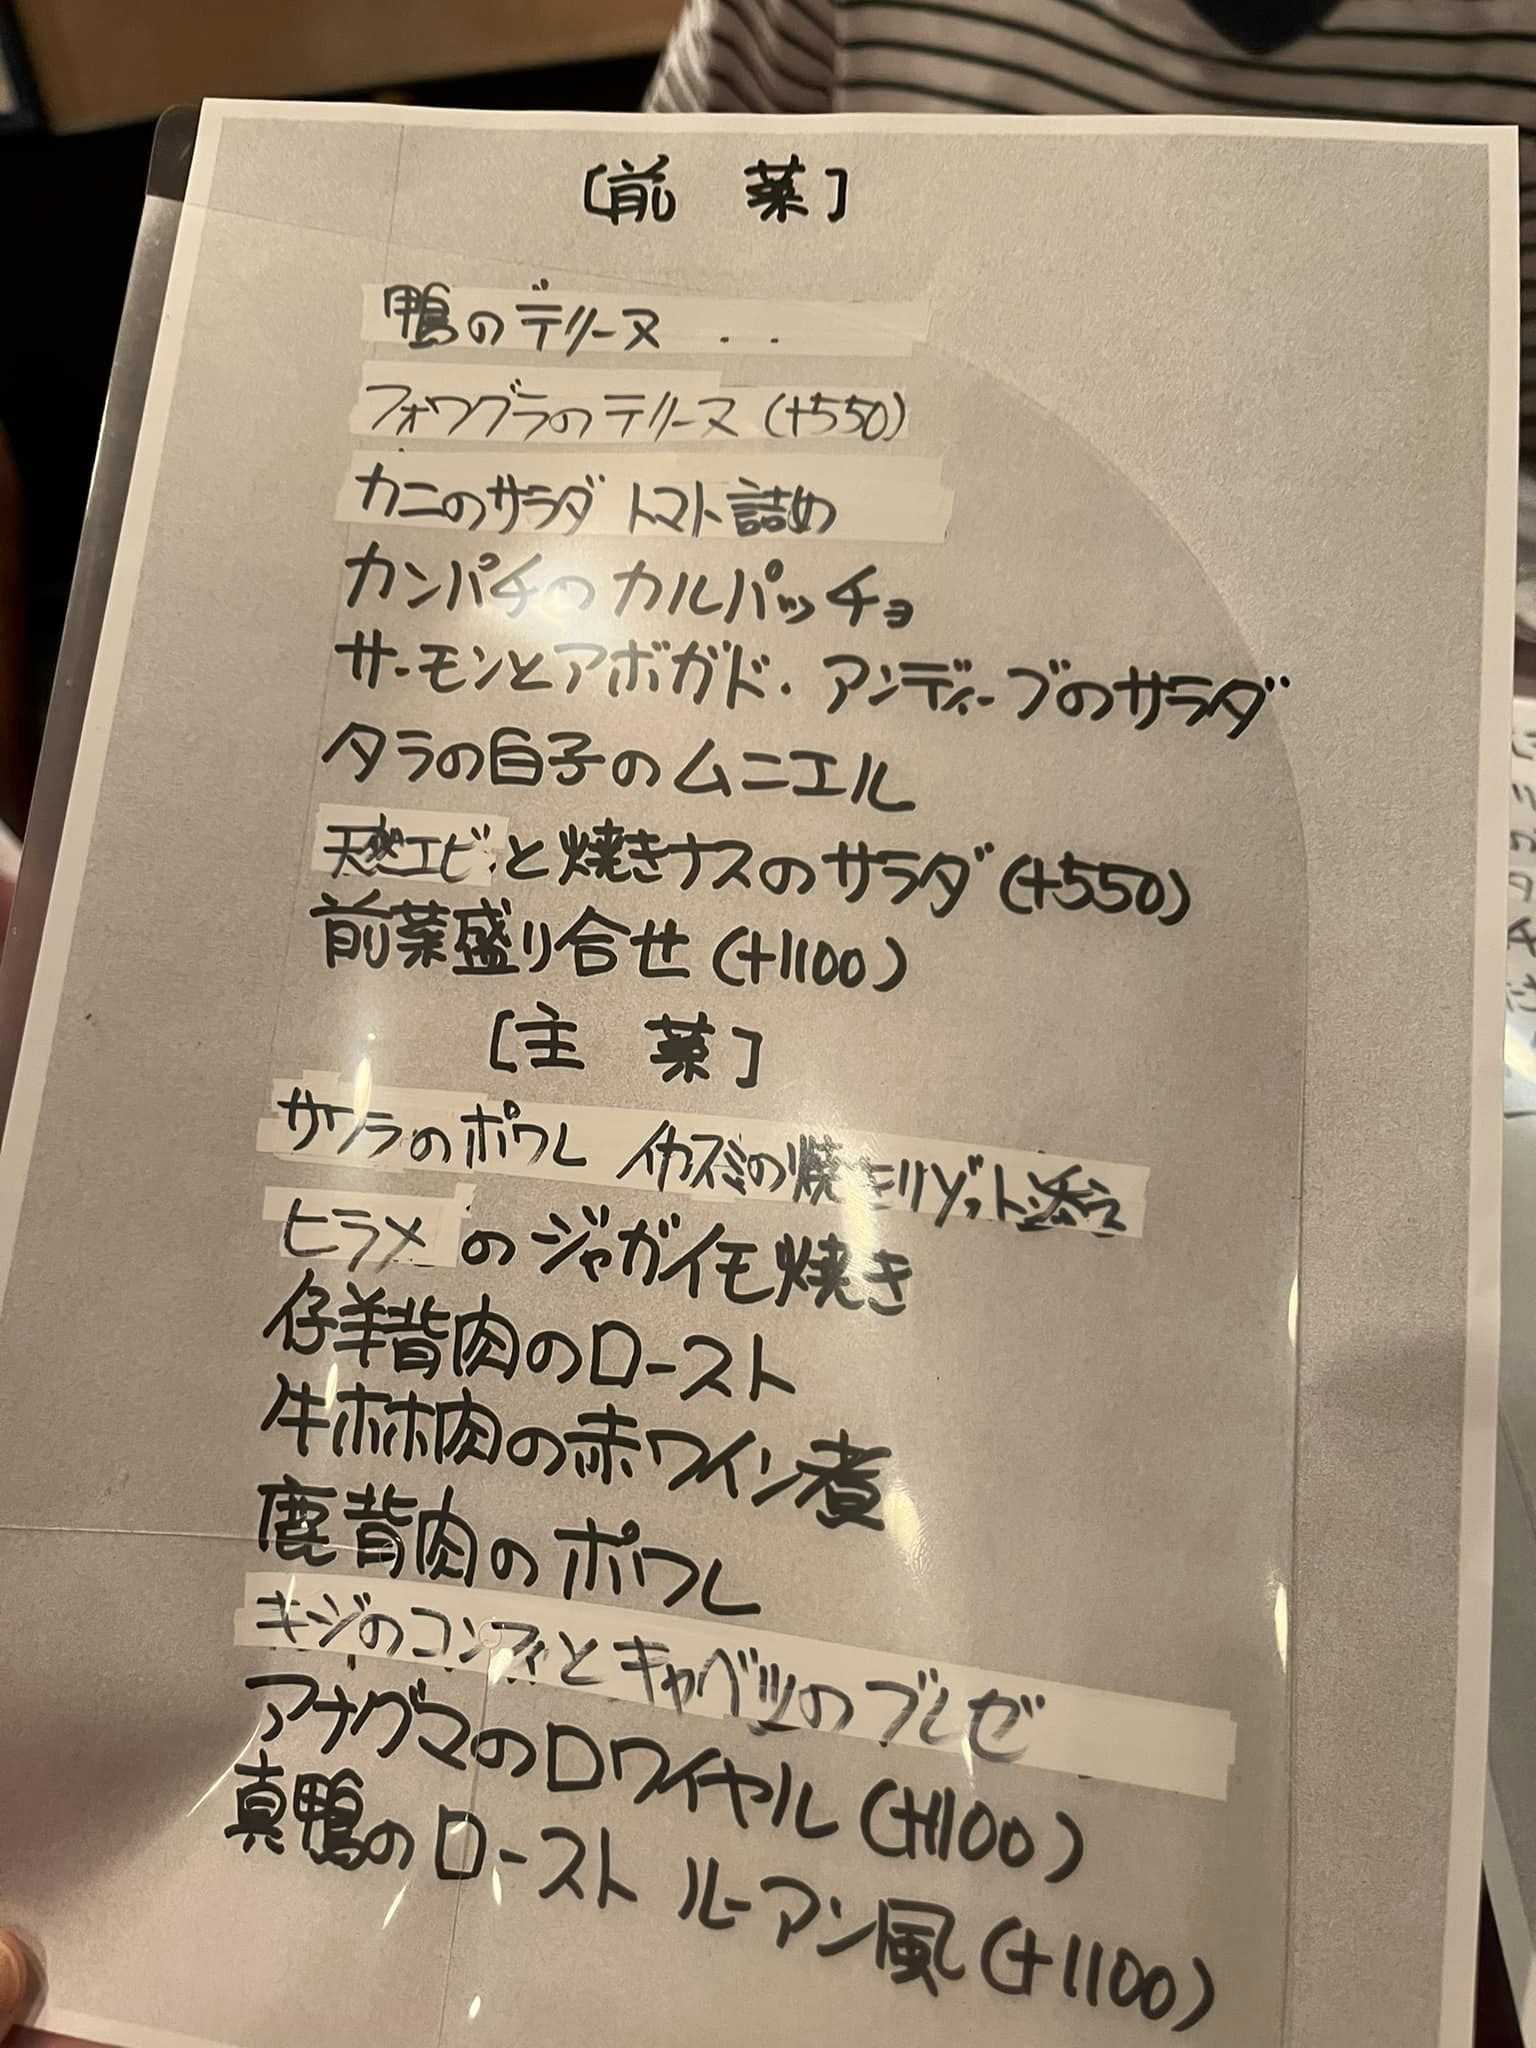 [前 菜]
鴨のテリーヌ . .
フォワグラのテリーヌ (+550)
カニのサラダ トマト詰め
カンパチのカルパッチョ
サーモンとアボガド・アンディーブのサラダ
タラの白子のムニエル
天然エビと焼きナスのサラダ (+550)
前菜盛り合せ (+1100)
[主 菜]
サワラのポワレ イカスミの焼きリゾット添え
ヒラメのジャガイモ焼き
仔羊背肉のロースト
牛ホホ肉の赤ワイン煮
鹿背肉のポワレ
キジのコンフィとキャベツのブレゼ
アナグマのロワイヤル (+1100)
真鴨のロースト ルーアン風 (+1100)